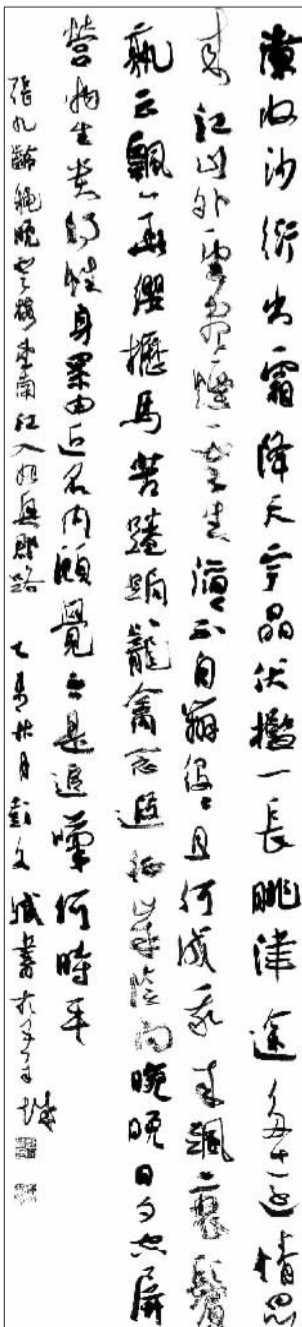 潦收沙衍出霜降天宇晶伏檻一長眺津途多遠情思
來江山外望盡煙雲生滔滔不自辨役役且何成我來颯衰鬢
孰云飄華纓櫪馬苦踡跼籠禽念遐征歲陰向晼晚日夕空屏
營物生貴得性身累由近名內顧覺今是追嘆何時平
張九齡秋晚登樓望南江入始興郡路 秋月彭文書於